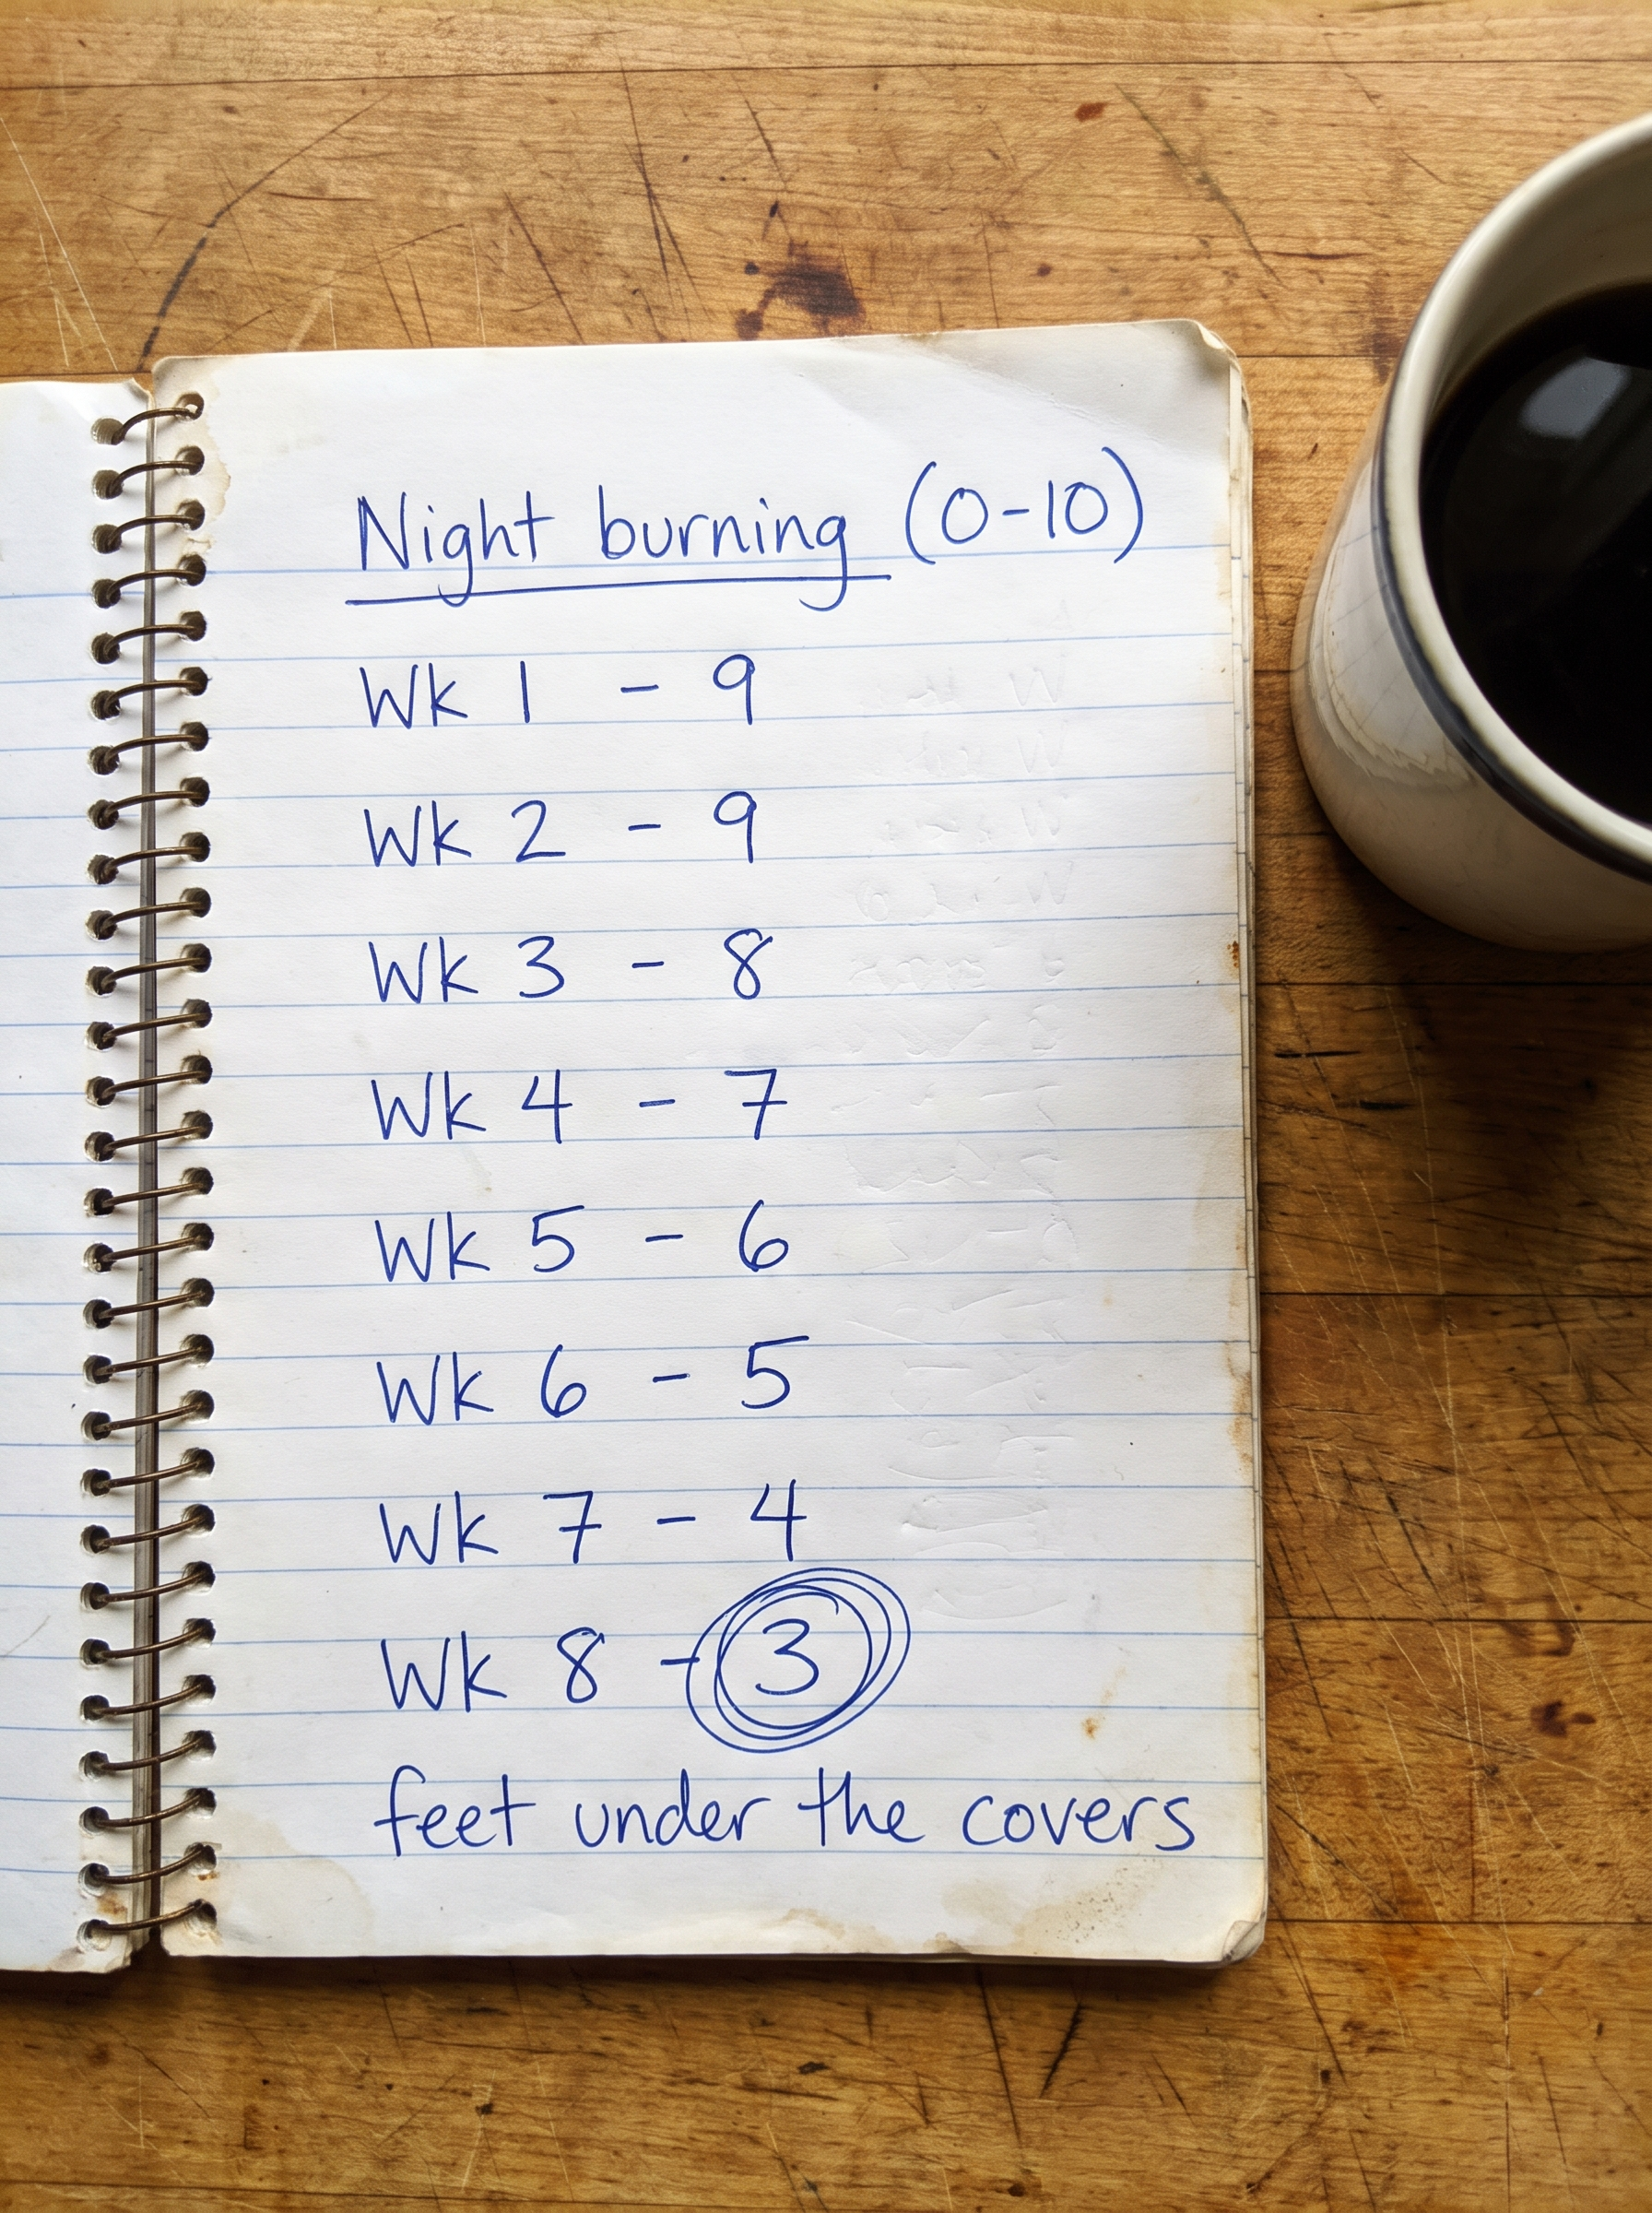 Night burning (0-10)
Wk 1 - 9
Wk 2 - 9
Wk 3 - 8
Wk 4 - 7
Wk 5 - 6
Wk 6 - 5
Wk 7 - 4
Wk 8 - 3
feet under the covers